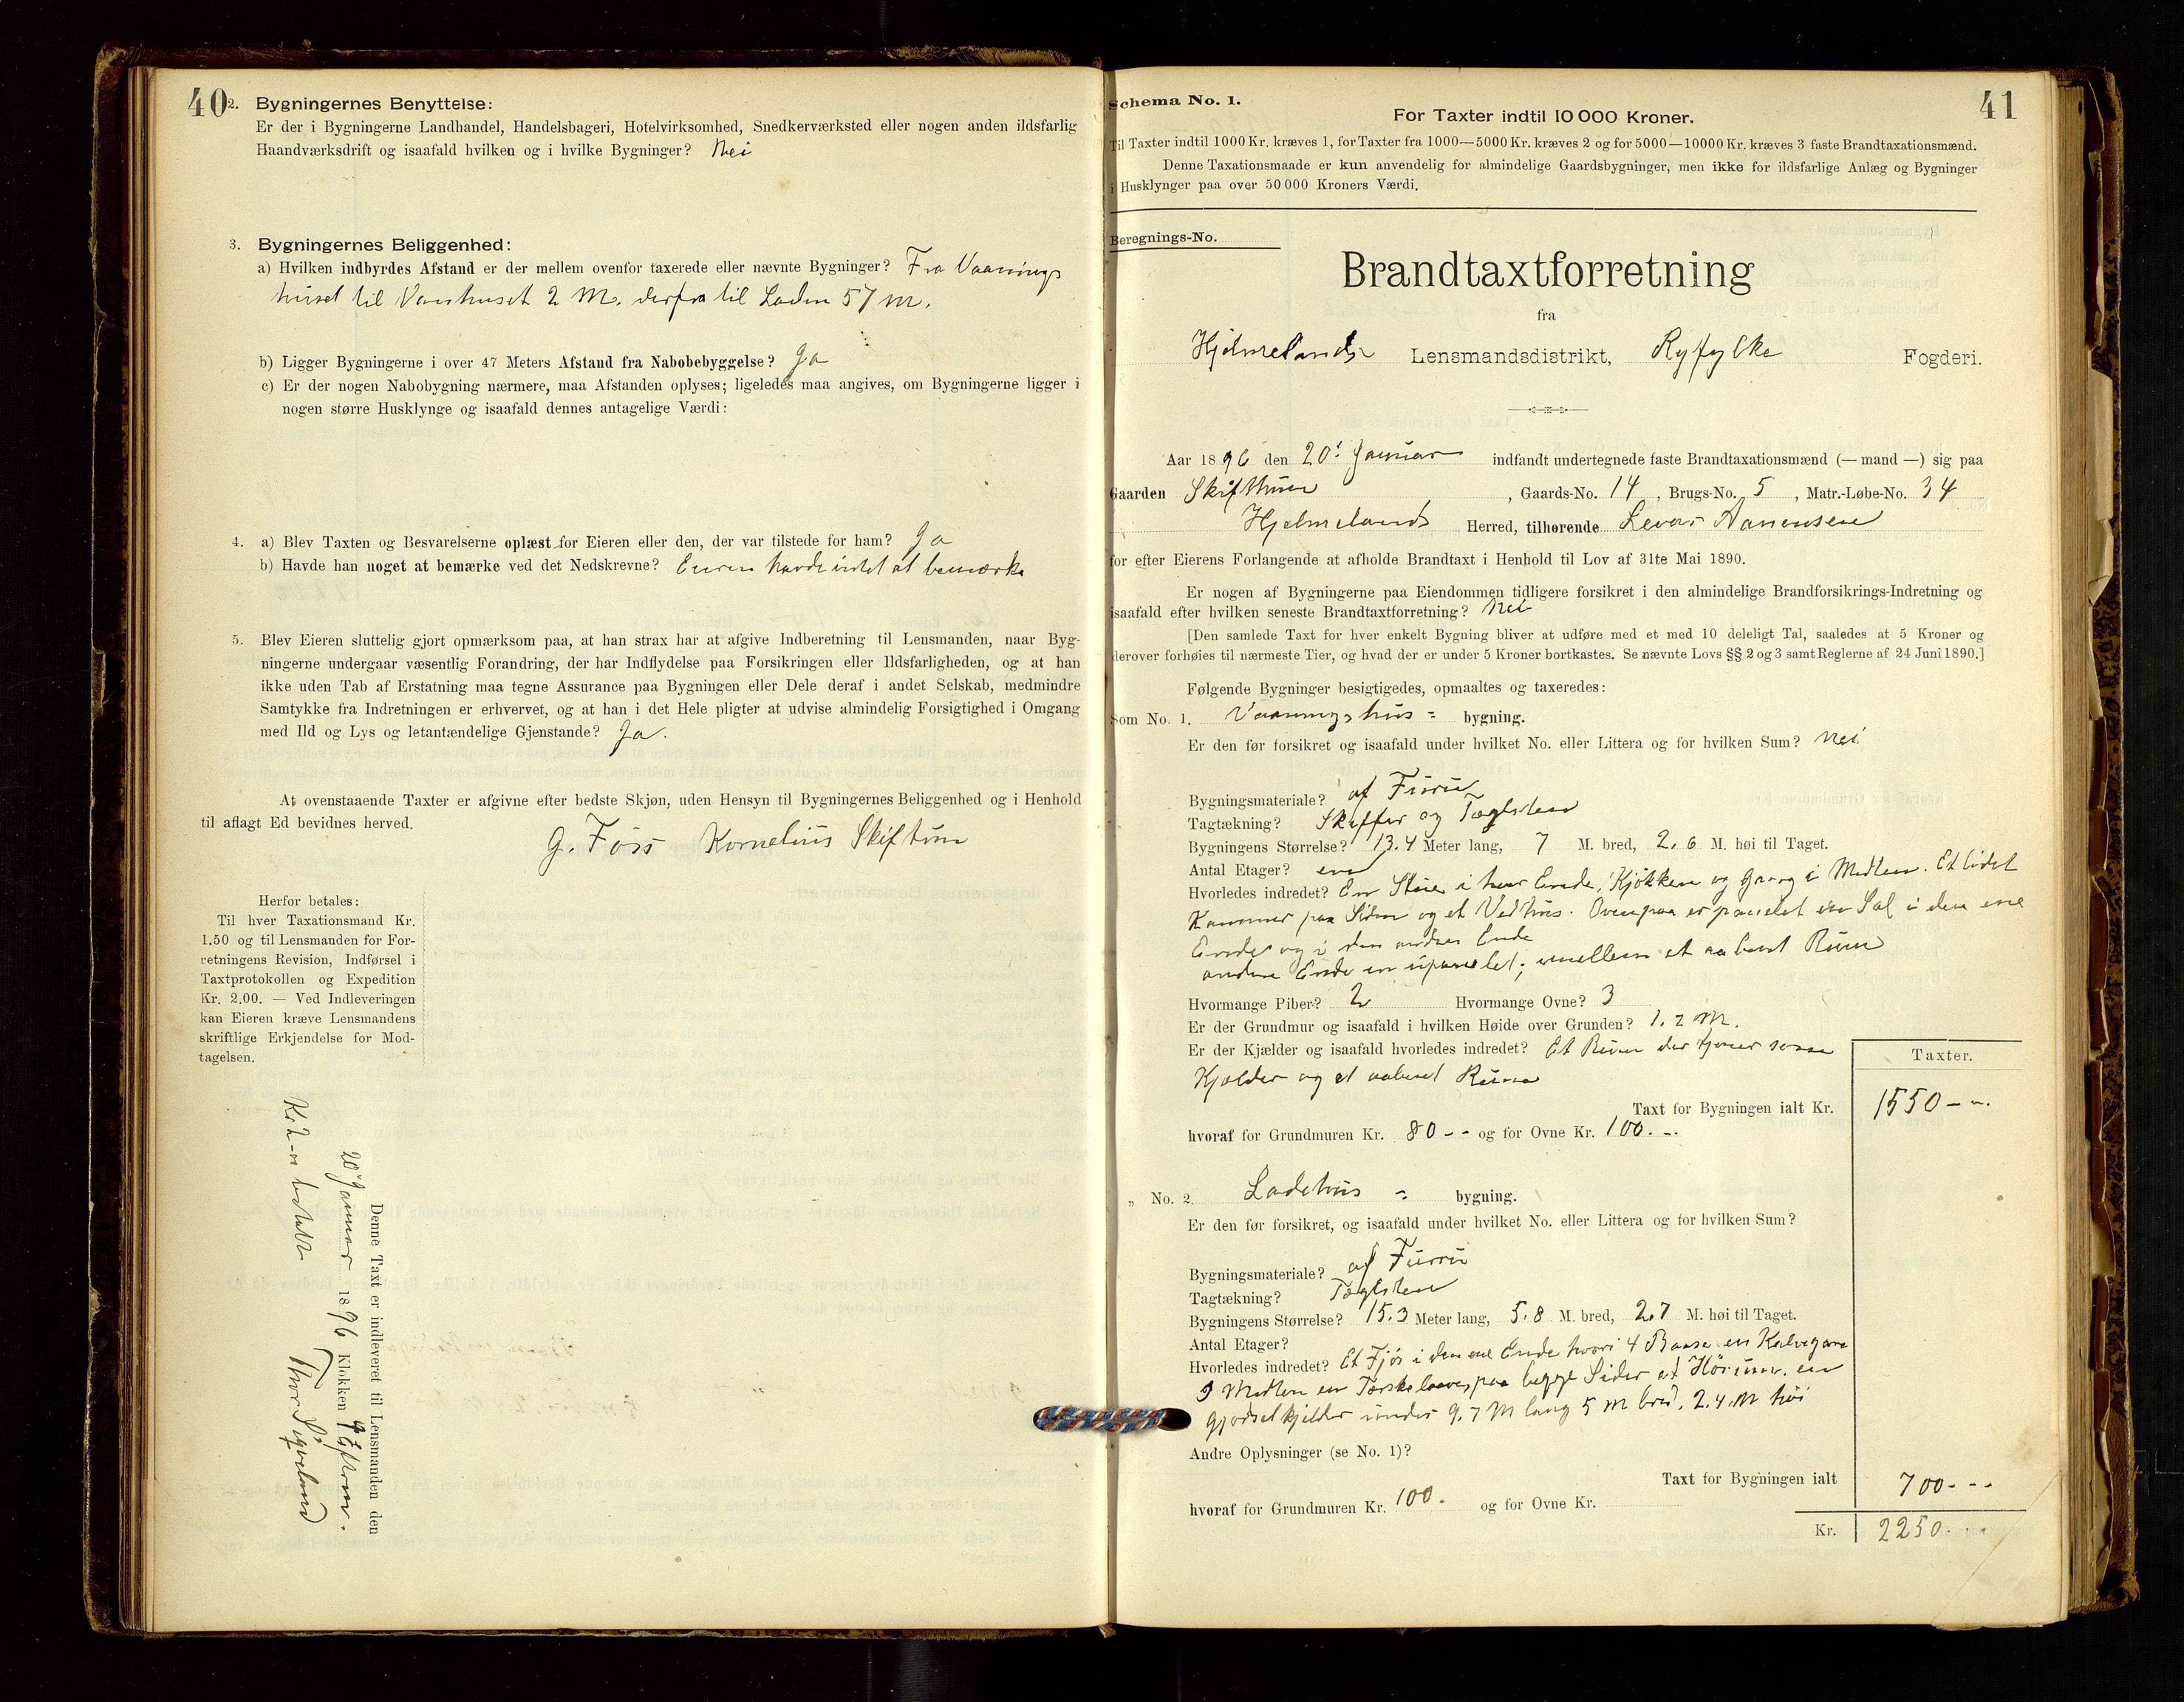 40
2. Bygningernes Benyttelse:
Er der i Bygningerne Landhandel, Handelsbageri, Hotelvirksomhed, Snedkerværksted eller nogen anden ildsfarlig
Haandværksdrift og isaafald hvilken og i hvilke Bygninger? Nei
3. Bygningernes Beliggenhed:
a) Hvilken indbyrdes Afstand er der mellem ovenfor taxerede eller nævnte Bygninger? Fra Vaanings
huset til Vanhuset 2 M. derfra til Laden 57 m.
b) Ligger Bygningerne i over 47 Meters Afstand fra Nabobebyggelse? Ja
c) Er der nogen Nabobygning nærmere, maa Afstanden oplyses; ligeledes maa angives, om Bygningerne ligger i
nogen større Husklynge og isaafald dennes antagelige Værdi:
4. a) Blev Taxten og Besvarelserne oplæst for Eieren eller den, der var tilstede for ham? Ja
b) Havde han noget at bemærke ved det Nedskrevne? Eieren havde intet at bemærke
5. Blev Eieren sluttelig gjort opmærksom paa, at han strax har at afgive Indberetning til Lensmanden, naar Byg-
ningerne undergaar væsentlig Forandring, der har Indflydelse paa Forsikringen eller Ildsfarligheden, og at han
ikke uden Tab af Erstatning maa tegne Assurance paa Bygningen eller Dele deraf i andet Selskab, medmindre
Samtykke fra Indretningen er erhvervet, og at han i det Hele pligter at udvise almindelig Forsigtighed i Omgang
med Ild og Lys og letantændelige Gjenstande? Ja.
At ovenstaaende Taxter er afgivne efter bedste Skjøn, uden Hensyn til Bygningernes Beliggenhed og i Henhold
til aflagt Ed bevidnes herved.
G. Foss Kornelius Skiftun
Herfor betales:
Til hver Taxationsmand Kr.
1.50 og til Lensmanden for For-
retningens Revision, Indførsel i
Taxtprotokollen og Expedition
Kr. 2.00. — Ved Indleveringen
kan Eieren kræve Lensmandens
skriftlige Erkjendelse for Mod-
tagelsen.
Denne Taxt er indleveret til Lensmanden den
20 Januar 1896 Klokken 9 Efterm.
Thor Sigveland
Kr 2-" betalt
41
Schema No. 1.
For Taxter indtil 10 000 Kroner.
Til Taxter indtil 1000 Kr. kræves 1, for Taxter fra 1000—5000 Kr. kræves 2 og for 5000—10000 Kr. kræves 3 faste Brandtaxationsmænd.
Denne Taxationsmaade er kun anvendelig for almindelige Gaardsbygninger, men ikke for ildsfarlige Anlæg og Bygninger
i Husklynger paa over 50 000 Kroners Værdi.
Beregnings-No.
Brandtaxtforretning
fra
Hjelmelands Lensmandsdistrikt, Ryfylke Fogderi.
Aar 1896 den 20. Januar indfandt undertegnede faste Brandtaxationsmænd (— mand —) sig paa
Gaarden Skifthun, Gaards-No. 14, Brugs-No. 5, Matr.-Løbe-No. 34
Hjelmelands Herred, tilhørende Aanensen
for efter Eierens Forlangende at afholde Brandtaxt i Henhold til Lov af 31te Mai 1890.
Er nogen af Bygningerne paa Eiendommen tidligere forsikret i den almindelige Brandforsikrings-Indretning og
isaafald efter hvilken seneste Brandtaxtforretning? Nei
[Den samlede Taxt for hver enkelt Bygning bliver at udføre med et med 10 deleligt Tal, saaledes at 5 Kroner og
derover forhøies til nærmeste Tier, og hvad der er under 5 Kroner bortkastes. Se nævnte Lovs §§ 2 og 3 samt Reglerne af 24 Juni 1890.]
Følgende Bygninger besigtigedes, opmaaltes og taxeredes:
Som No. 1. Vaaningshus = bygning.
Er den før forsikret og isaafald under hvilket No. eller Littera og for hvilken Sum? Nei
Bygningsmateriale? af Furu
Tagtækning? Skiffer og Taglsten
Bygningens Størrelse? 13.4 Meter lang, 7 M. bred, 2.6 M. høi til Taget.
Antal Etager? en
Hvorledes indredet? En Stue i hver Ende, Kjøkken og Gang i Midten. Et lidet
Kammer paa Siden og et Vedhus. Ovenpaa er panelet en Sal i den ene
Ende og i den anden Ende
anden Ende en upanelet; mellem et aabent Rum
Hvormange Piber? 2 Hvormange Ovne? 3
Er der Grundmur og isaafald i hvilken Høide over Grunden? 1.2 M.
Er der Kjælder og isaafald hvorledes indredet? Et Rum der tjener som
Kjælder og et aabent Rum
Taxter.
Taxt for Bygningen ialt Kr. 1550 - ".
hvoraf for Grundmuren Kr. 80 - - og for Ovne Kr. 100. -.
„ No. 2. Ladehus = bygning.
Er den før forsikret, og isaafald under hvilket No. eller Littera og for hvilken Sum?
Bygningsmateriale? af Furru
Tagtækning? Taglsten
Bygningens Størrelse? 15.3 Meter lang, 5.8 M. bred, 2.7 M. høi til Taget.
Antal Etager?
Hvorledes indredet? Et Fjøs i den ene Ende hvori 4 Baase en Kalvegare
I Midten en Tærskelaave, paa begge Sider et Hørum. en
Gjødselkjelder under 9.7 M lang 5 m bred, 2.4 M høi
Andre Oplysninger (se No. 1)?
Taxt for Bygningen ialt 700 - - -
hvoraf for Grundmuren Kr. 100. og for Ovne Kr.
Kr. 2250. - -